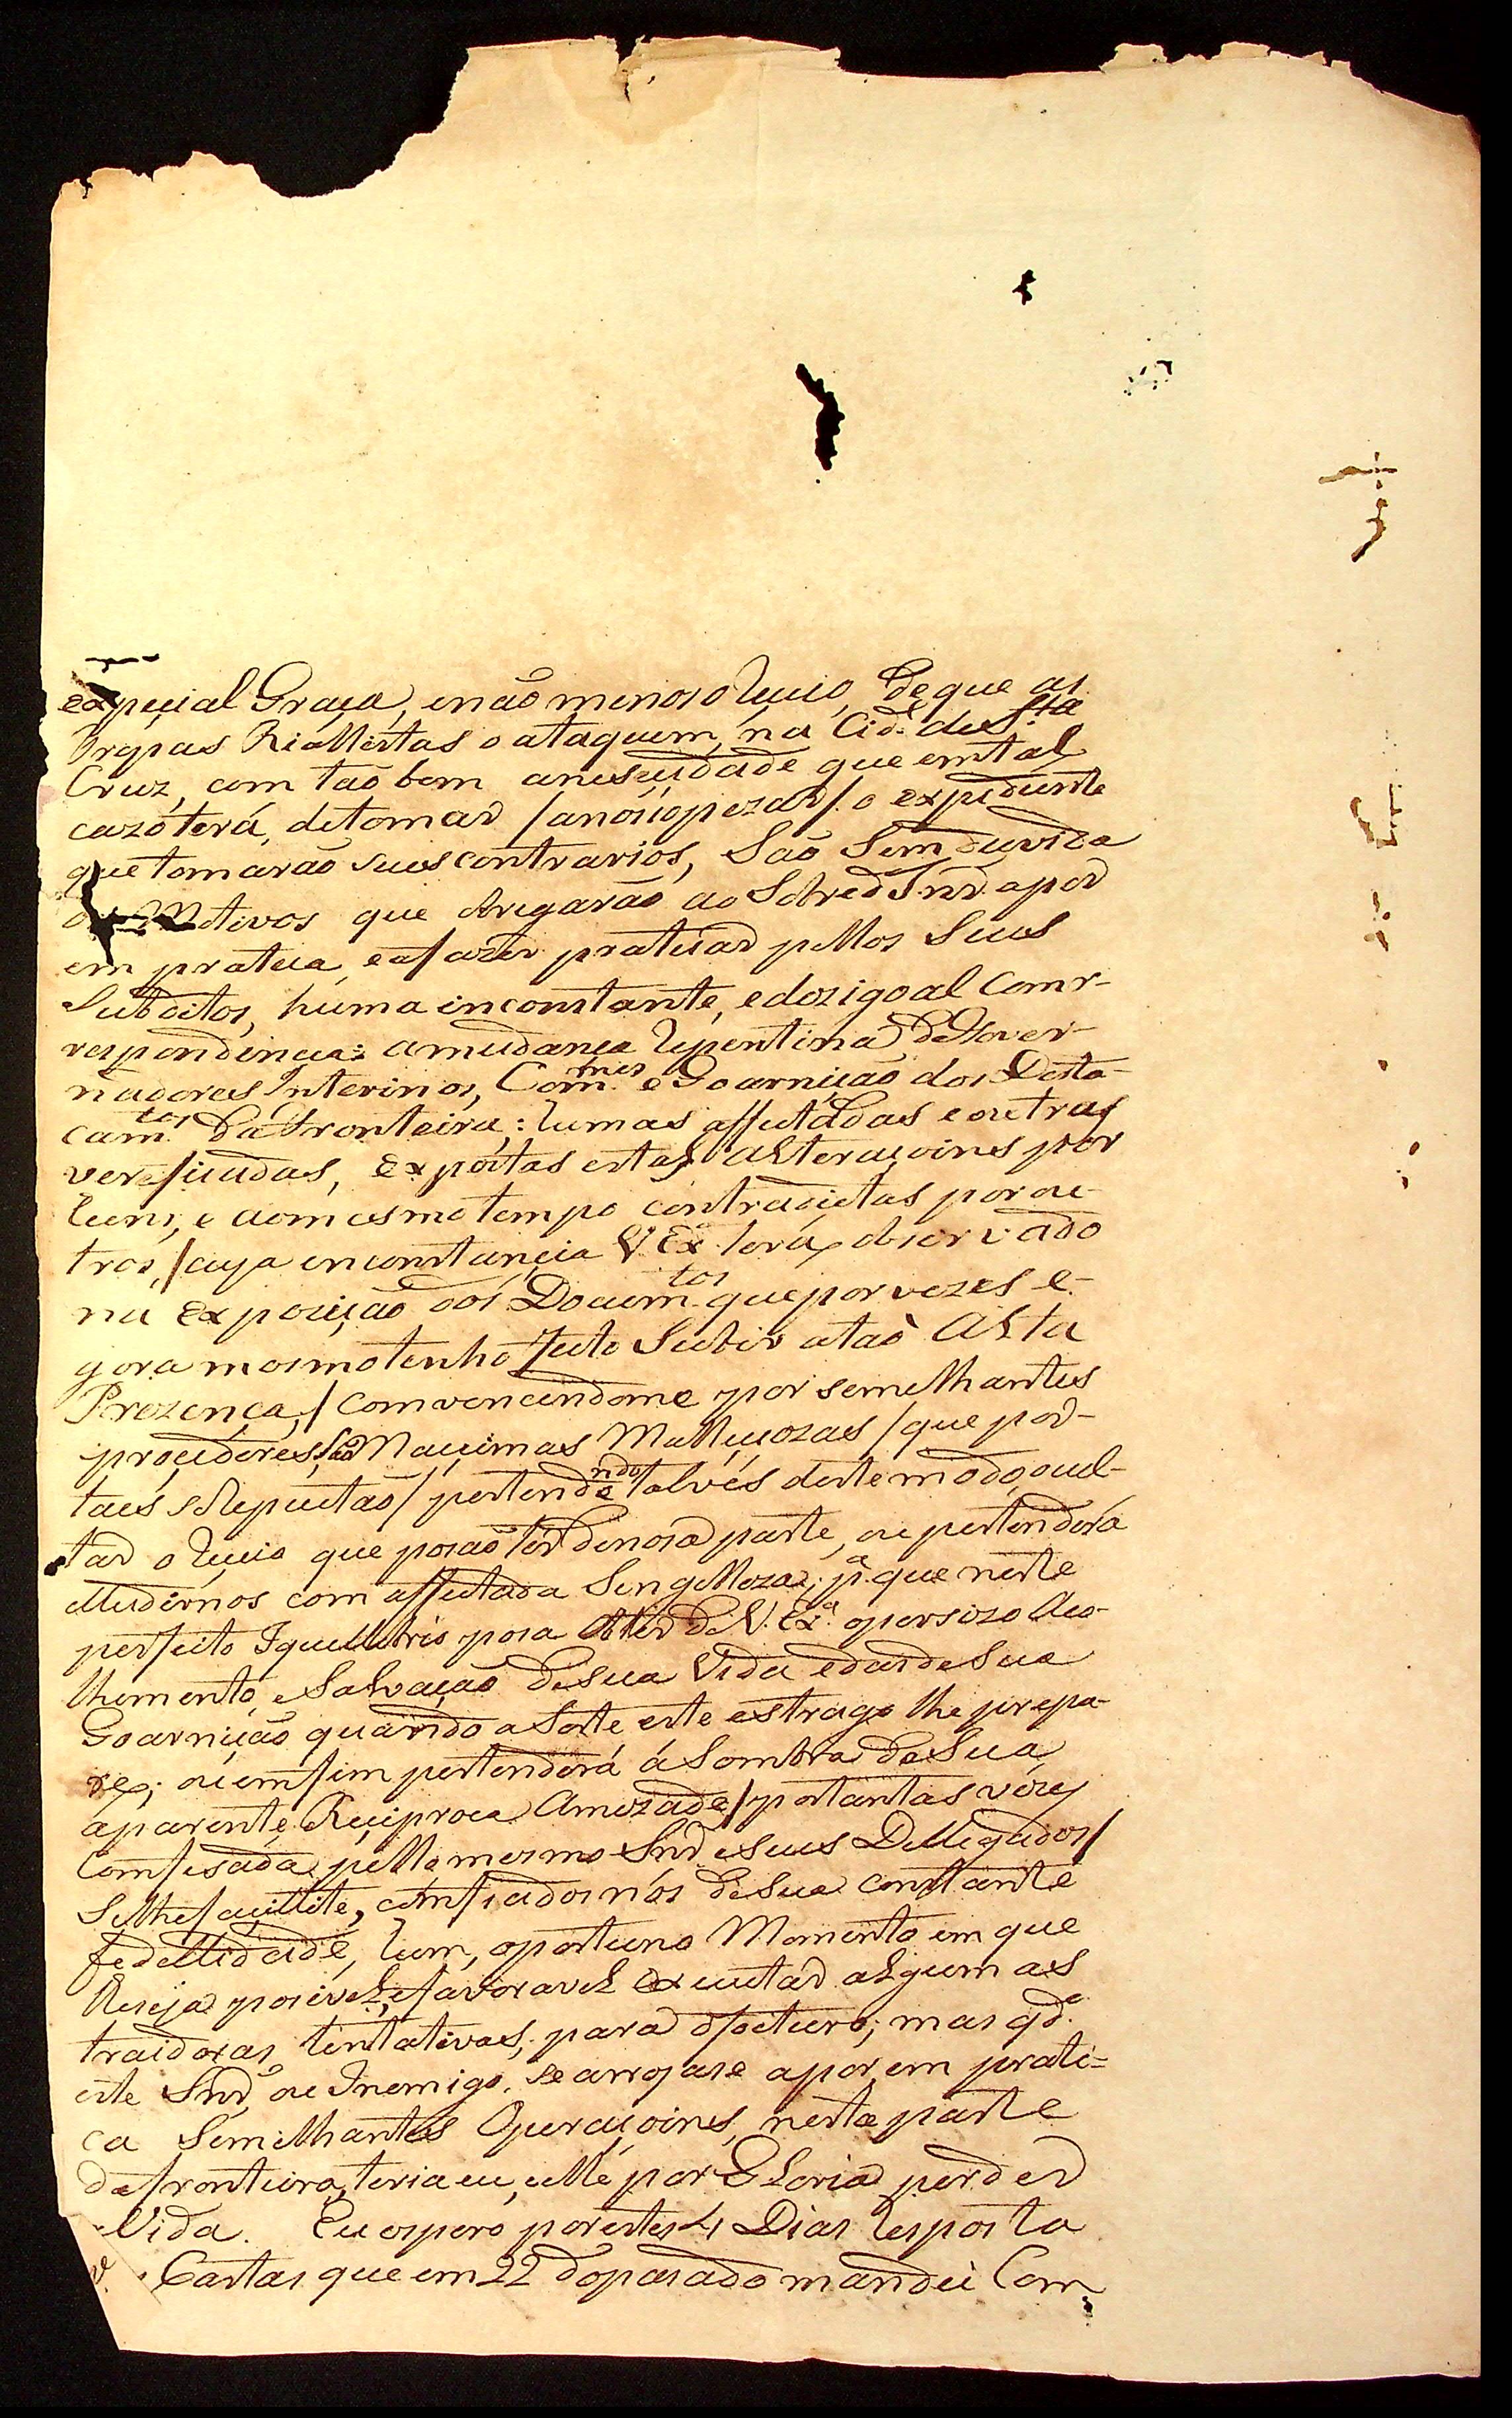 especial Graça, enão menor o Receio, de que as
Tropas Riallistas o ataquem, na Cid.e de S.ta
Cruz, com tão bem a neseçidade que em tal
cazo terá, de tomar /anósopezar/ o expediente
que tomarão seus contrarios, São Sem duvida
os Motivos que obrigarão ao Sobred.o Snr. apor
em pratica, eafazer praticar pellos Seus
Subditos, huma inconstante, e dezigoal Comr-
respondencia: amudança Repentina de Gover-
nadores Interinos, Com.mes e Goarnição dos Desta-
cam.tos da Fronteira: humas affectadas e outras
verificadas, expostas estas Alteraçoins por
huns, e aomesmo tempo contraditas por ou-
tros, /cuja inconstancia V. Ex.a terá observado
na expozição dos Docum.tos que por vezes e a-
gora mesmo tenho feito Subir atáo Alta
Prezença,/ Comvencendome por semelhantes
procederes, São Maximas Malliciozas /que por
taes Reputão/ pertendendo talvés deste modo, ocul-
tar o Receio que posão ter denosa parte, ou pertenderá
elludirnos com affectada Singelleza; p.a que neste
perfeito Iquellibrio posa obter de V. Ex.a opersizo Aco-
lhemento, e Salvação de sua Vida edasde Sua
Goarnição quando a Sorte este estrago lhe prepa-
re; ou emfim pertenderá á Sombra de Sua
aparente Reciproca Amizade /portantas vezes
Comfesada, pello mesmo Snr. e seus Dellegados/
Selhe facillite, comfiados nós de Sua constante
fedellidade, hum, oportuno Momento em que
lheseja posivel, efavoravel executar algumas
traidoras tentativas, para ofucturo; mas q.do
este Snr. ou Inemigo, se arrojase apor em prati=
ca Semelhantes Operaçoins, nesta parte
dafronteira, teria eu, elle por Gloria perder
a Vida. Eu espero porestes 4 Dias Resposta
Cartas que em 22 dopasado mandei Com